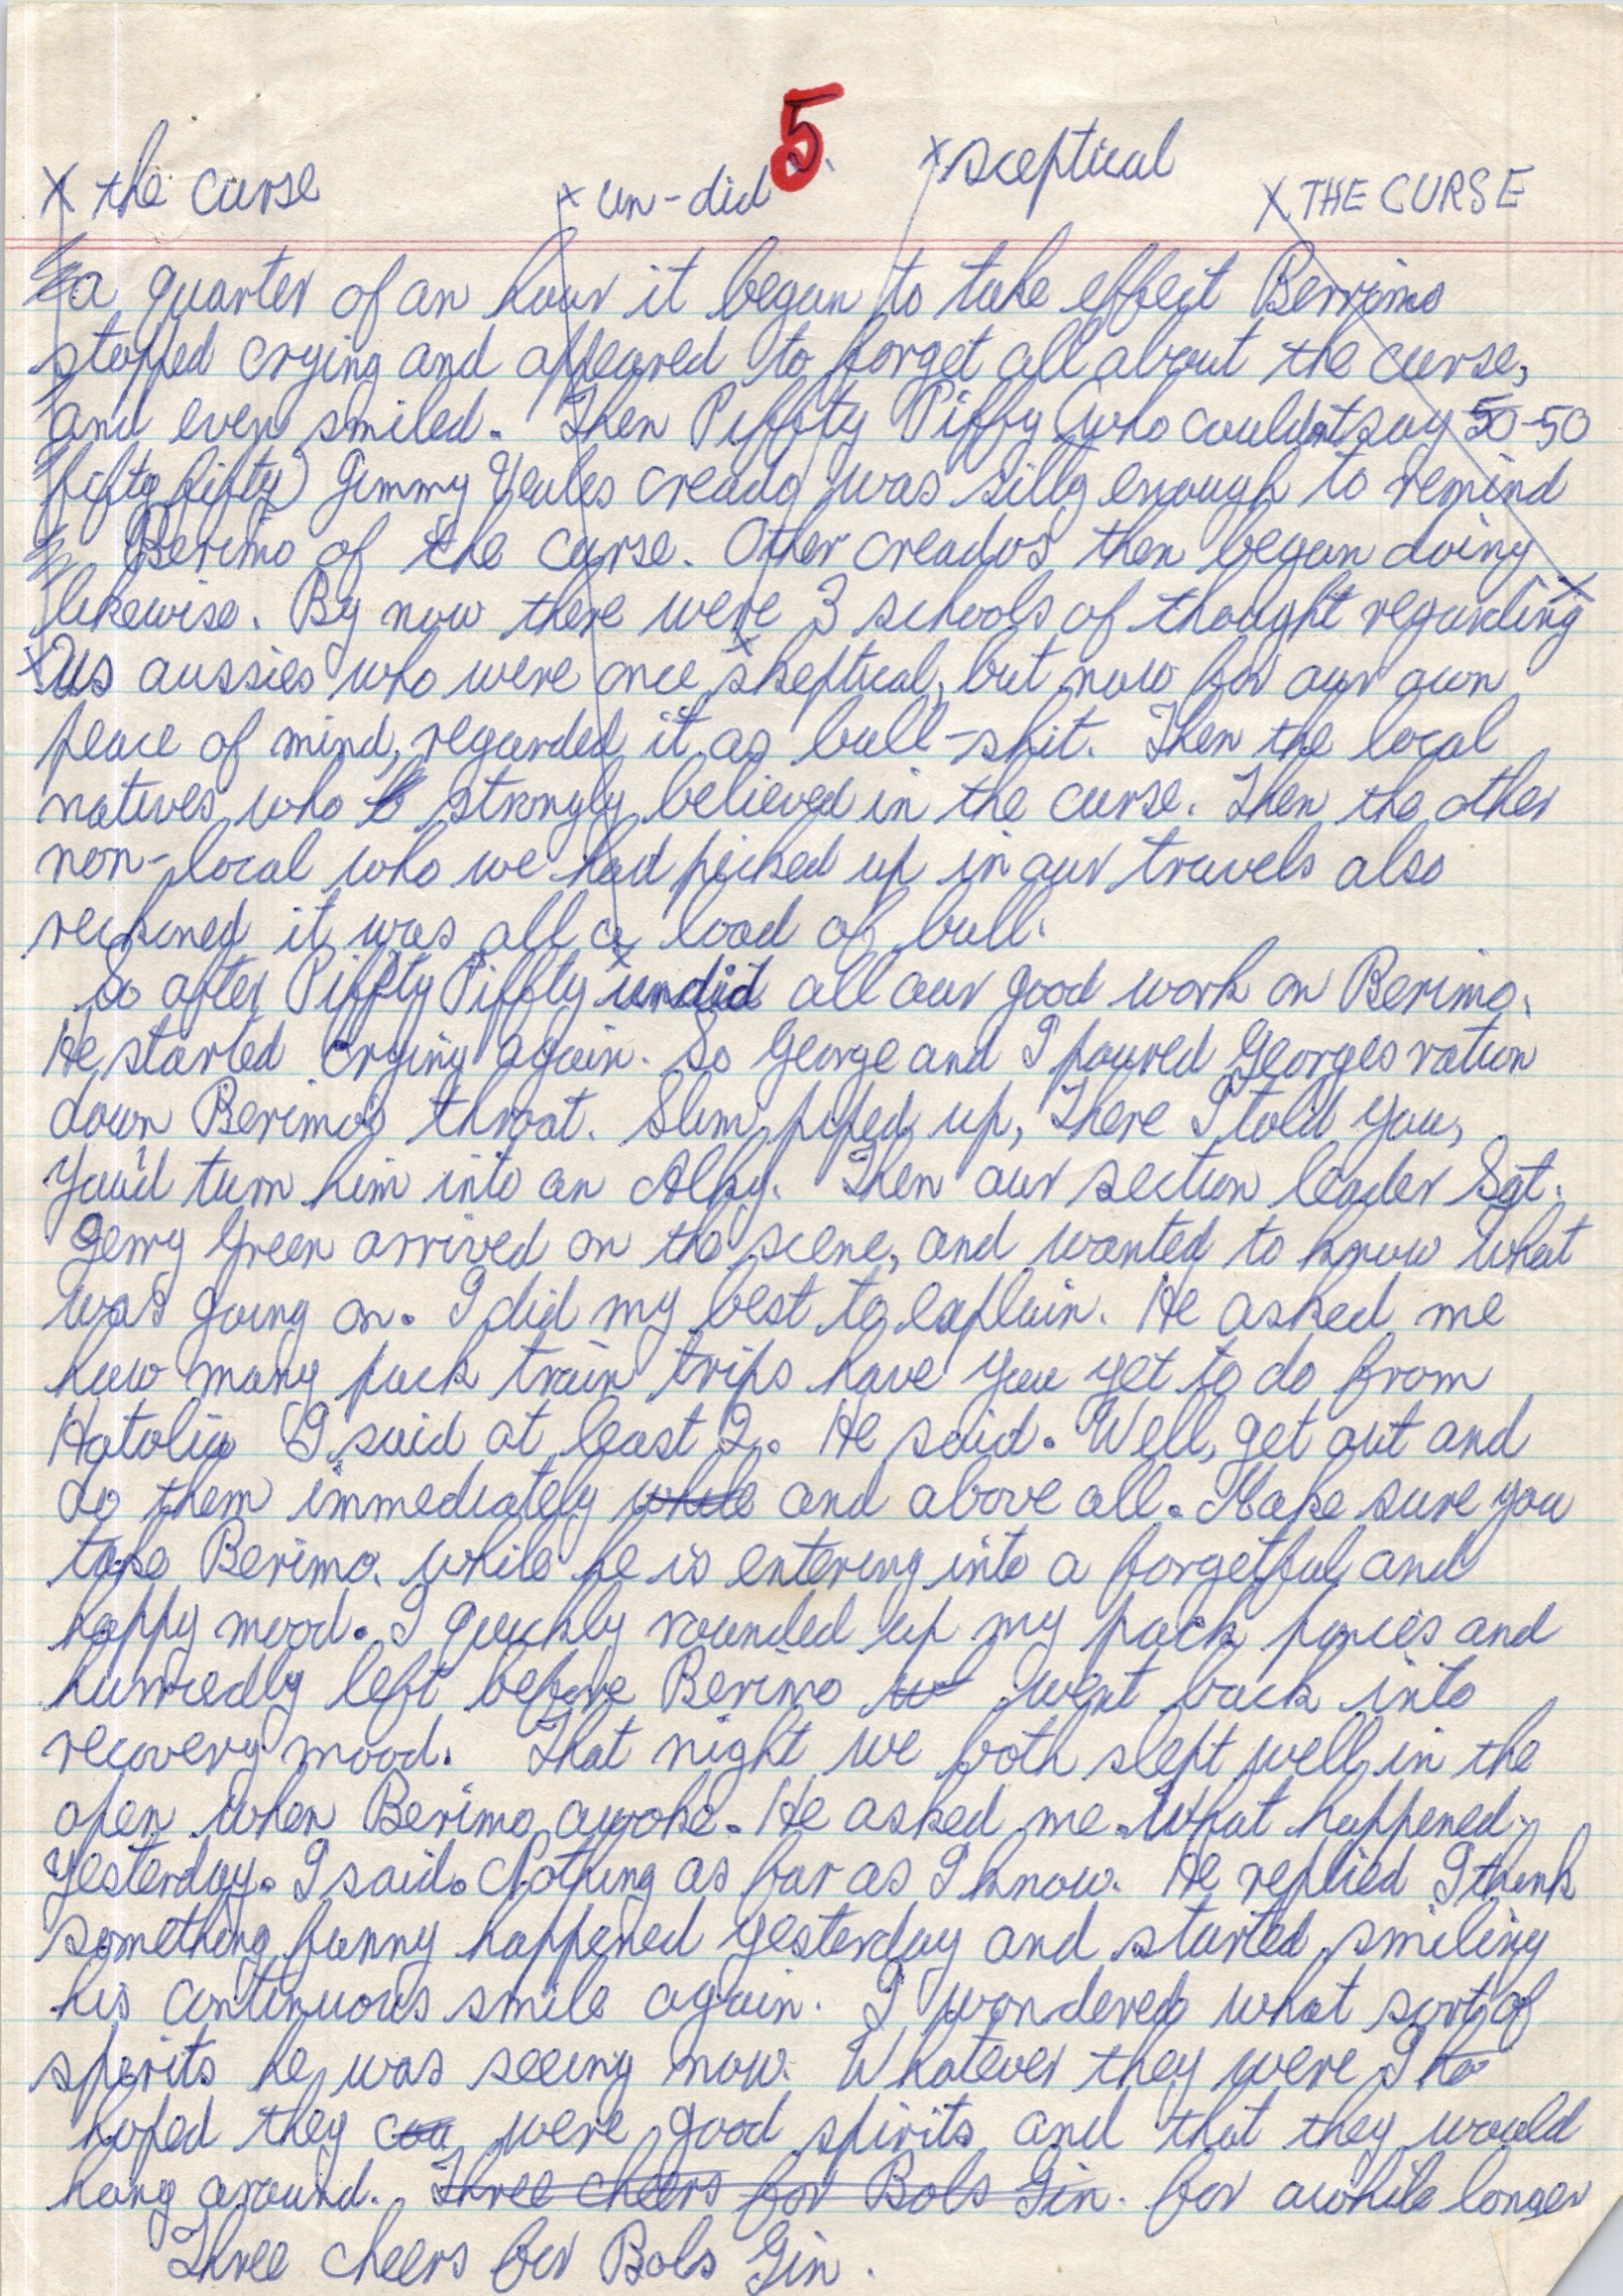 5.
x the curse x un-did x sceptical x THE CURSE
a quarter of an hour it began to take effect Berrimo
stopped crying and appeared to forget all about the curse,
and even smiled. Then Piffty Piffy (who couldnt say 50-50
fifty fifty) Jimmy Veales creado was silly enough to remind
Berimo of the curse. Other creados then began doing
likewise. By now there were 3 schools of thought regarding
x Us aussies who were once skeptical, but now for our own
peace of mind, regarded it as bull-shit. Then the local
natives who strongly believed in the curse. Then the other
non-local who we had picked up in our travels also
reckoned it was all a load of bull.
So after Piffty Piffty undid all our good work on Berimo.
He started crying again. So George and I poured Georges ration
down Berimo's throat. Slim piped up, There I told you,
You'd turn him into an Alky. Then our section leader Sgt.
Gerry Green arrived on the scene, and wanted to know what
was going on. I did my best to explain. He asked me
how many pack train trips have you yet to do from
Hatolia I said at least 2. He said. Well, get out and
do them immediately while and above all. Make sure you
take Berimo. while he is entering into a forgetful and
happy mood. I quickly rounded up my pack ponies and
hurriedly left before Berimo w went back into
recovery mood. That night we both slept well in the
open when Berimo awoke. He asked me. What happened
Yesterday. I said. Nothing as far as I know. He replied I think
something funny happened yesterday and started smiling
his continuous smile again. I wondered what sort of
spirits he was seeing now. Whatever they were I ho
hoped they cou were good spirits and that they would
hang around. Three cheers for Bols Gin. for awhile longer
Three cheers for Bols Gin.